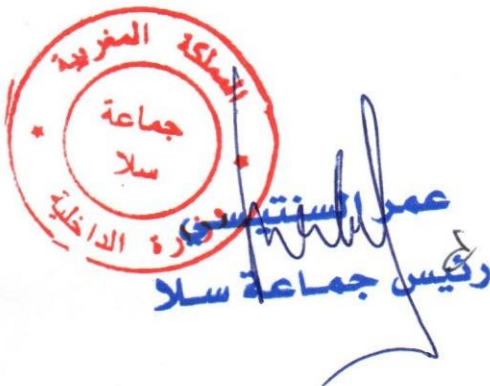 المملكة المغربية
جماعة
سلا
وزارة الداخلية
عمر السنتيسي
رئيس جماعة سلا